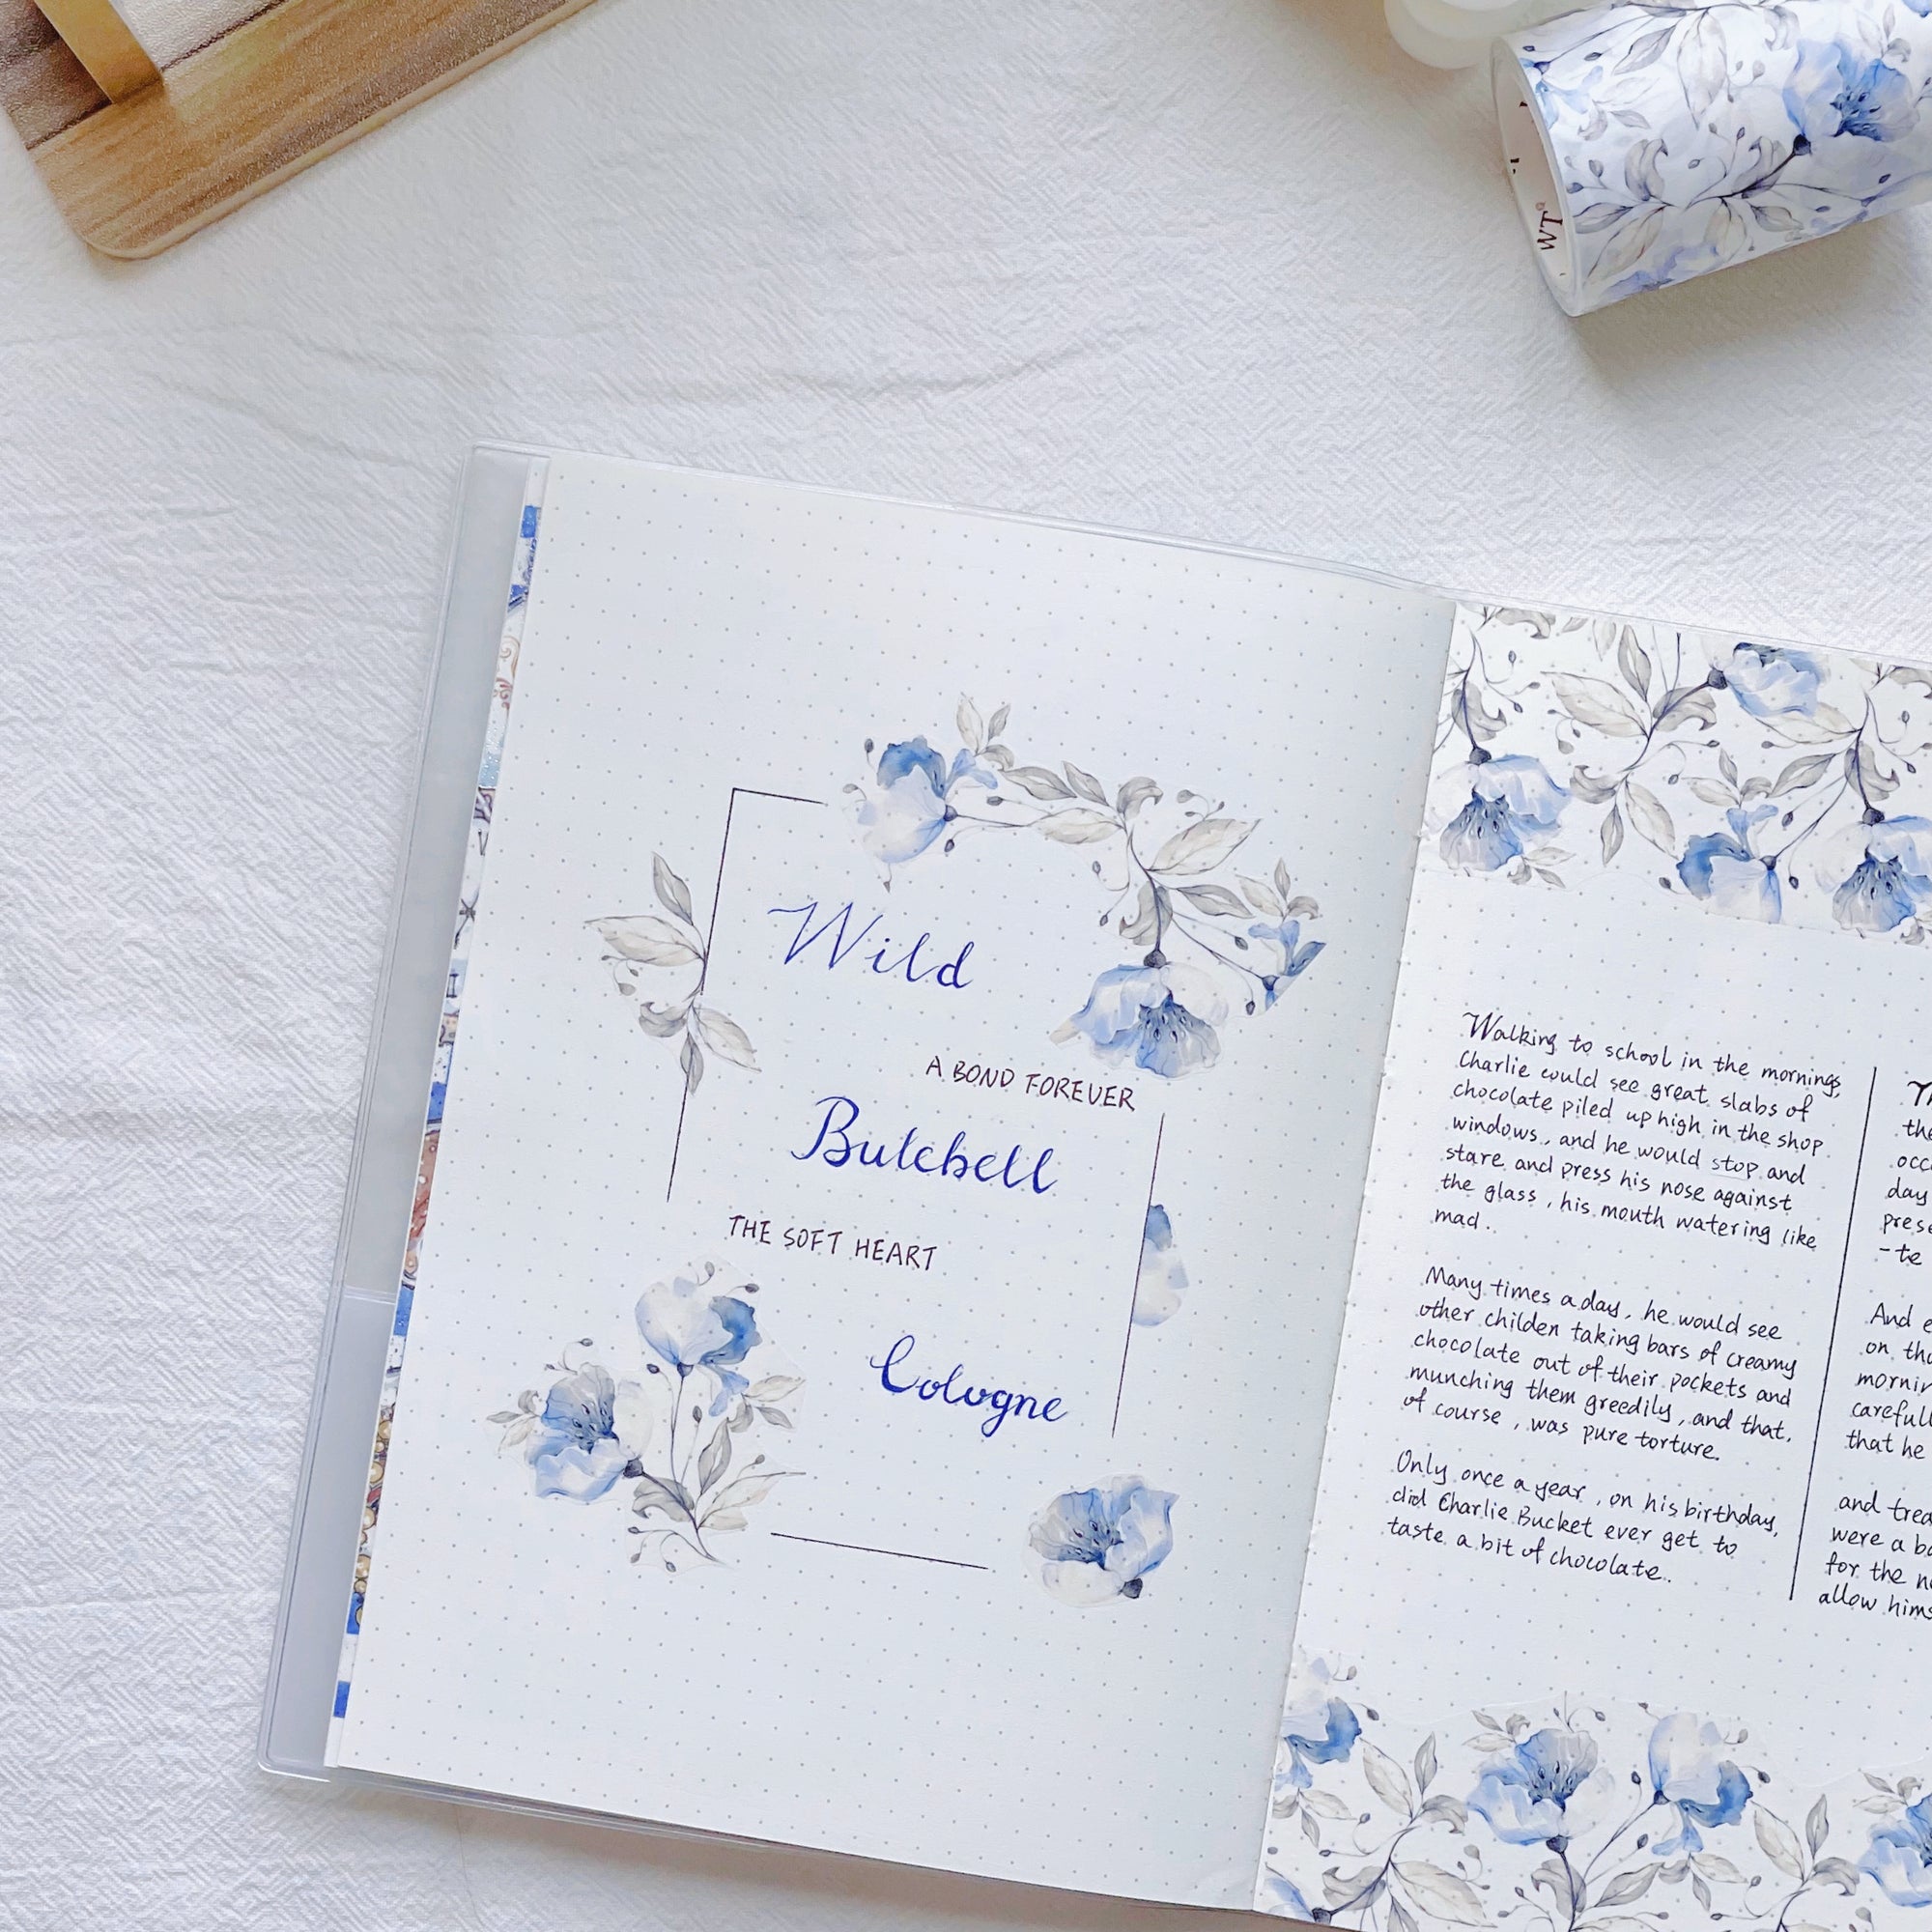 WT
Wild
A BOND FOREVER
Butcbell
THE SOFT HEART
Cologne
Walking to school in the mornings,
Charlie could see great slabs of
chocolate piled up high in the shop
windows, and he would stop and
stare and press his nose against
the glass, his mouth watering like
mad..
Many times a day, he would see
other childen taking bars of creamy
chocolate out of their pockets and
munching them greedily, and that,
of course, was pure torture.
Only once a year, on his birthday,
did Charlie Bucket ever get to
taste a bit of chocolate..
the
day
-te
And
on
that he
and
were a
for the
allow